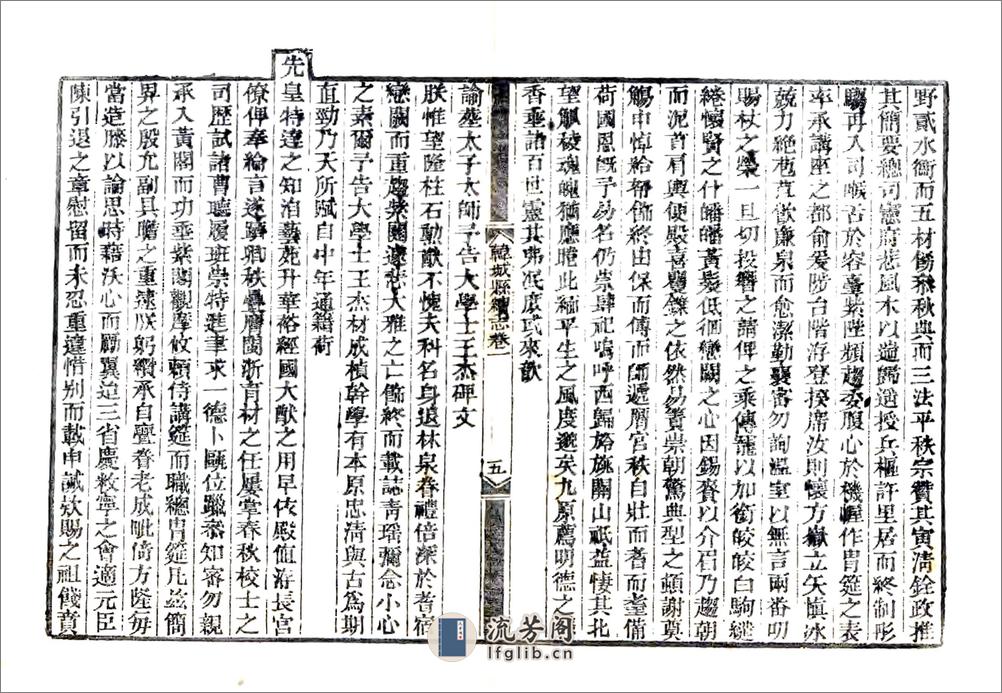 野貳水衡而五材飭飛秋典而三法平秩宗贊其寅淸銓政推
其簡要總司憲府悲風木以遄歸遥授兵樞許里居而終制彤
騶再入司喉舌於容臺紫陛頻趨委腹心於機幄作冑筵之表
率承講座之都俞爰陟台階洊登揆席汝則懷方嶽立矢愼冰
兢力絶苞苴歡廉泉而愈潔勤襄密勿詢溫室以無言兩番叨
賜杖之榮一旦切投簪之請俾之乘傳寵以加銜皎皎白駒縫
綣懷賢之什皤皤黃髮低徊戀闕之心因錫賚以介眉乃趨朝
而泥首肩輿便殿喜矍鑠之依然易簀崇朝驚典型之頓謝奠
觴申悼給帑飾終由保而傅而師遞晉宮秩自壯而耆而耋備
荷國恩旣予易名仍崇肆祀嗚呼西歸旐旆關山祇益悽其北
望觚稜魂魄猶應瞻此緬平生之風度邈矣九原薦明德之馨
香垂諸百世靈其弗泯庶式來歆
韓城縣續志卷一
五
諭葬太子太師予告大學士王杰碑文
朕惟望隆柱石勳猷不愧夫科名身退林泉眷禮倍深於耆宿
戀闕而重趨紫闥遽悲大雅之亡飾終而載誌靑瑤彌念小心
之素爾予告大學士王杰材成楨幹學有本原忠淸與古爲期
直勁乃天所賦自中年通籍荷
先皇特達之知洎藝苑升華裕經國大猷之用早依殿值洊長宮
僚俾奉綸言遂躋卿秩疊膺閩浙育材之任屢掌春秋校士之
司歷試諸曹聽履班崇特進聿求一德卜甌位躐叅知審勿親
承入黃閣而功垂紫閣觀摩攸賴侍講筵而職總冑筵凡茲簡
畀之殷允副具瞻之重逮朕躬纘承自譽眷老成毗倚方隆每
當造膝以論思時藉沃心而勵翼迨三省慶敉寧之會適元臣
陳引退之章慰留而未忍重違惜别而載申誠欵賜之祖餞賁
流芳阁
lfglib.cn